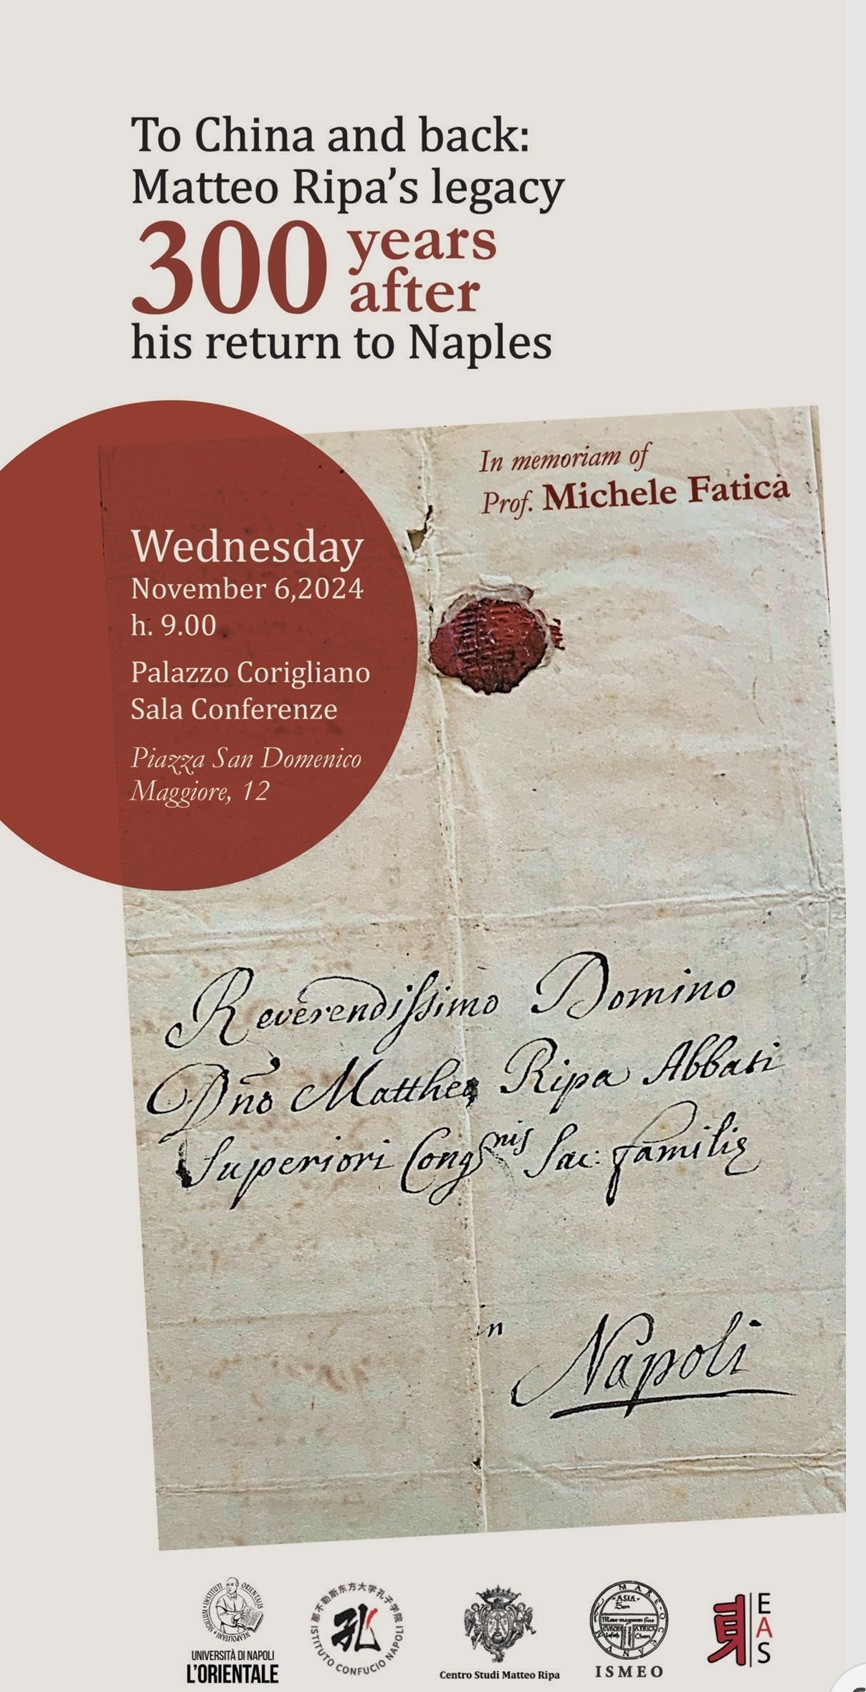 To China and back:
Matteo Ripa's legacy
300 years
after
his return to Naples
In memoriam of
Prof. Michele Fatica
Wednesday
November 6,2024
h. 9.00
Palazzo Corigliano
Sala Conferenze
Piazza San Domenico
Maggiore, 12
Reverendissimo Domino
Dño Mattheo Ripa Abbati
Superiori Congnis Sac: familię
in
Napoli
UNIVERSITÀ DI NAPOLI
L'ORIENTALE
那不勒斯东方大学孔子学院
ISTITUTO CONFUCIO NAPOLI
孔
Centro Studi Matteo Ripa
MARE OCEANUM
ASIA
EUROPA AFRICA
ISMEO
EAS